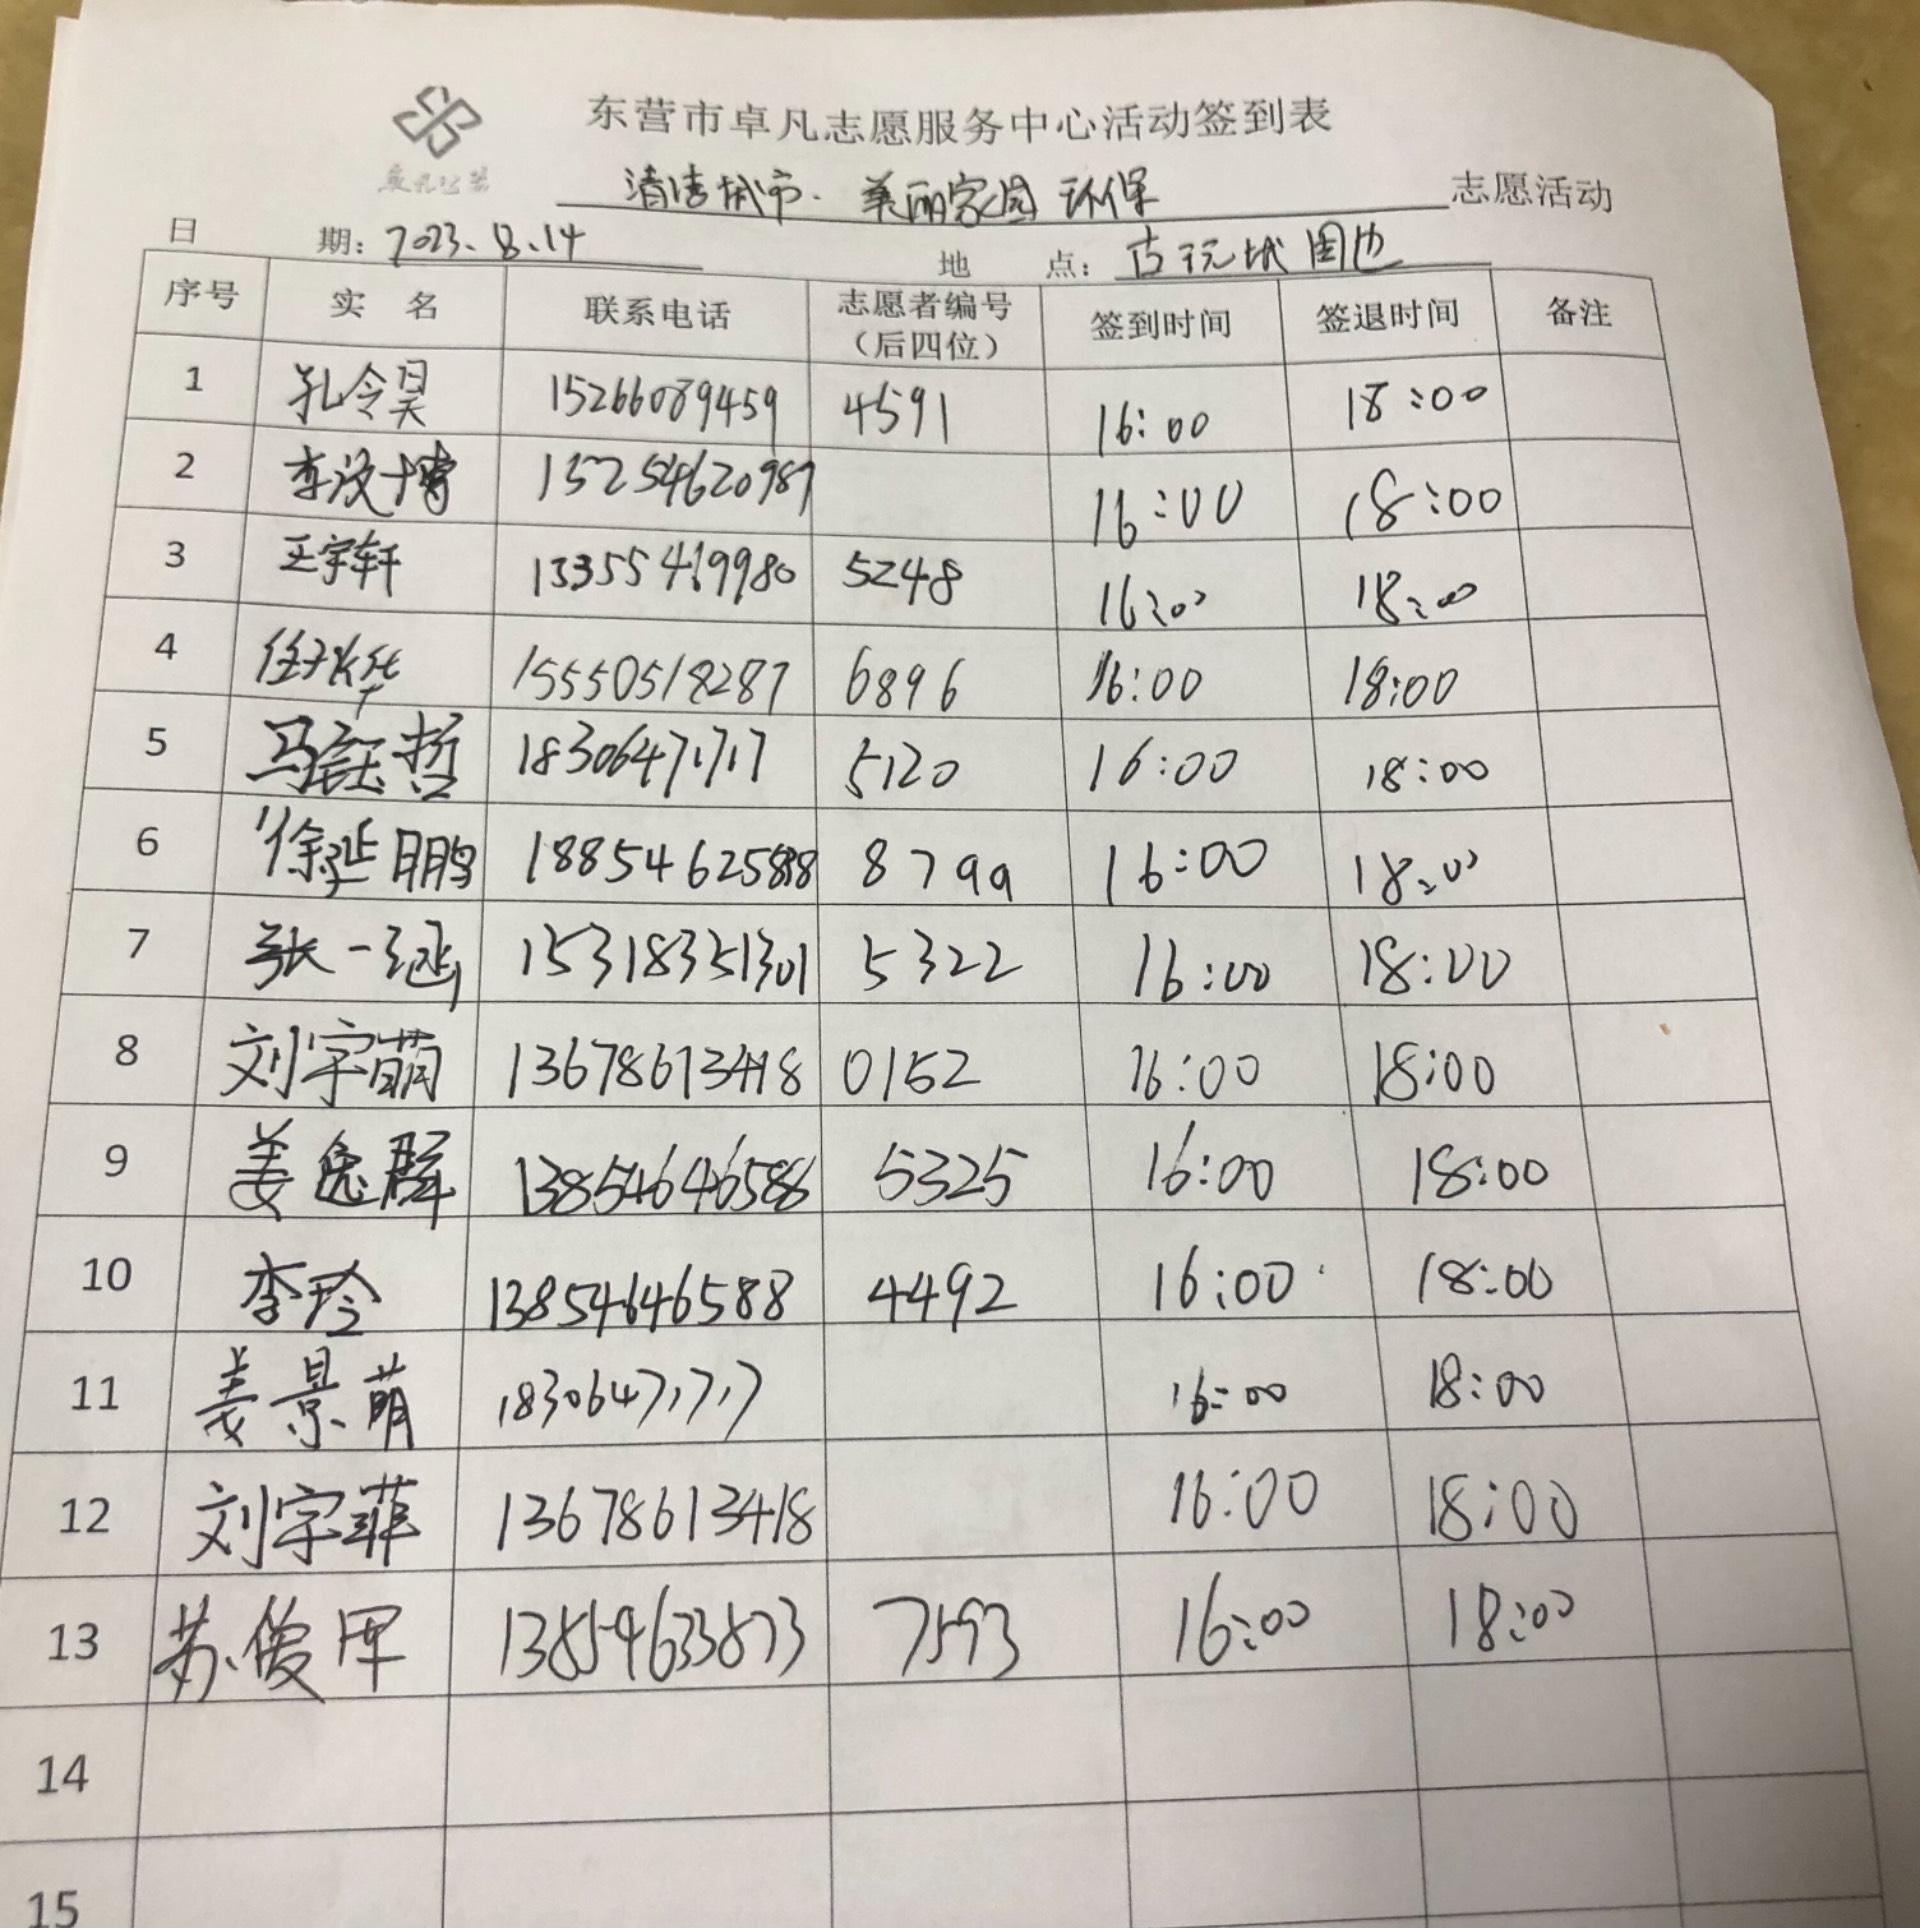 东营市卓凡志愿服务中心活动签到表
清洁城市·美丽家园 环保 志愿活动
日期：2023.8.14 地点：古玩城周边
序号 实名 联系电话 志愿者编号（后四位） 签到时间 签退时间 备注
1 孔令昊 15266089459 4591 16:00 18:00
2 李汶博 15254620987 16:00 18:00
3 王宇轩 13355419980 5248 16:00 18:00
4 15550518287 6896 16:00 18:00
5 马钰哲 18306471717 5120 16:00 18:00
6 徐延鹏 18854625888 8799 16:00 18:00
7 张一涵 15318351301 5322 16:00 18:00
8 刘宇萌 13678613418 0152 16:00 18:00
9 姜逸群 13854646588 5325 16:00 18:00
10 李玲 13854646588 4492 16:00 18:00
11 姜景萌 18306471717 16:00 18:00
12 刘宇菲 13678613418 16:00 18:00
13 苏俊 13854633873 7593 16:00 18:00
14
15